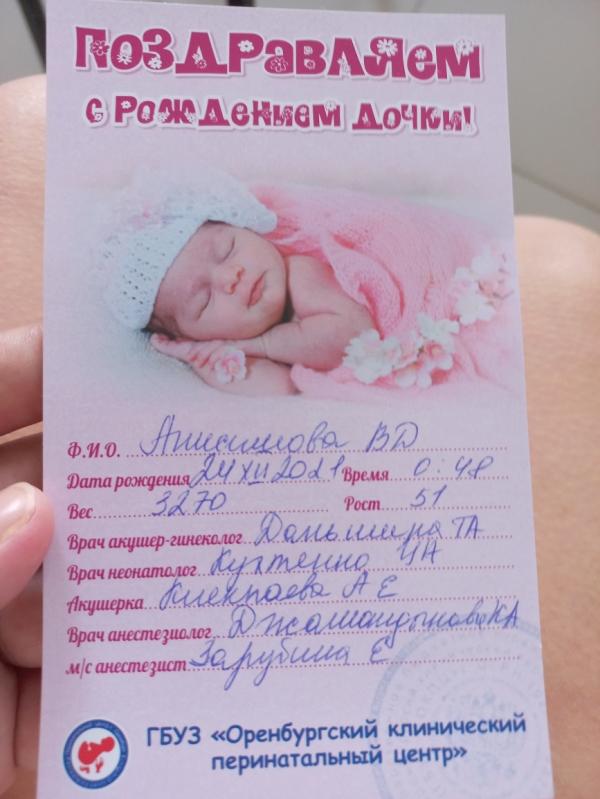 Поздравляем
с рождением дочки!
Ф.И.О. Анисимова ВД
Дата рождения 24 XII 2021 Время 0:48
Вес 3270 Рост 51
Врач акушер-гинеколог ТА
Врач неонатолог
Акушерка АЕ
Врач анестезиолог КА
м/с анестезист Зарубина Е
ГБУЗ «Оренбургский клинический
перинатальный центр»